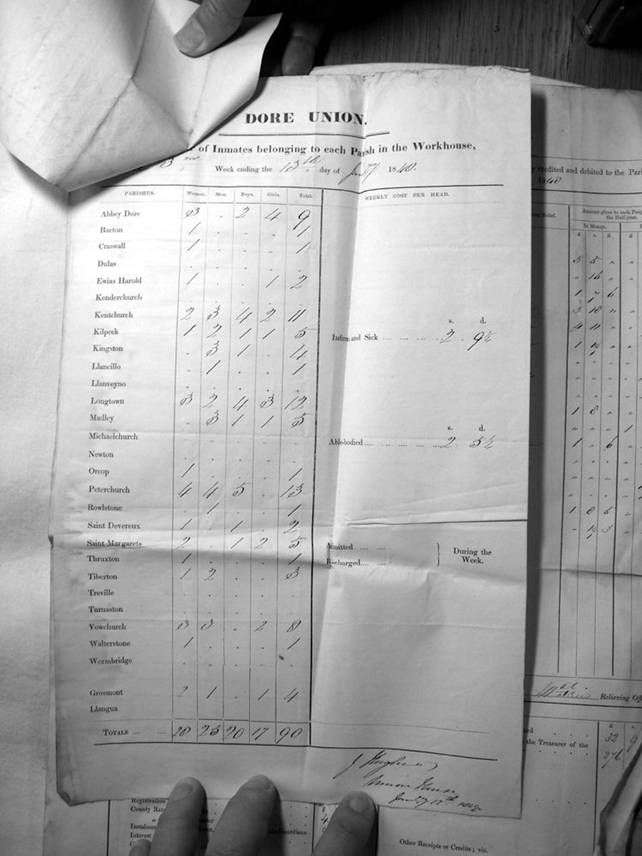 DORE UNION.
of Inmates belonging to each Parish in the Workhouse,
Week ending the 13th day of 1840.
PARISHES. Women. Men. Boys. Girls. Total. WEEKLY COST PER HEAD.
Abbey Dore 3 . 2 4 9
Bacton 1 . . . 1
Craswall 1 . . . 1
Dulas
Ewias Harold 1 . . 1 2
Kenderchurch
Kentchurch 2 3 4 2 11
s. d.
Kilpeck 1 2 1 1 5 Infirm and Sick 2 9½
Kingston . 3 1 . 4
Llancillo . 1 . . 1
Llanveyno
Longtown 3 2 4 3 12
Madley . 3 1 1 5
s. d.
Michaelchurch Able-bodied 2 5½
Newton
Orcop 1 . . . 1
Peterchurch 4 4 5 . 13
Rowlstone . 1 . . 1
Saint Devereux 1 . 1 . 2
Saint Margarets 2 . 1 2 5 Admitted
During the Week.
Thruxton 1 . . . 1 Discharged
Tiberton 1 2 . . 3
Treville
Turnaston
Vowchurch 3 3 . 2 8
Walterstone 1 . . . 1
Wormbridge
Grosmont 2 1 . 1 4
Llangua
TOTALS 28 25 20 17 90
credited and debited to the
1840
Amount given to each
the Half-year.
In Money.
Relieving
the Treasurer of the
Registration
County
Other Receipts or Credits; viz.